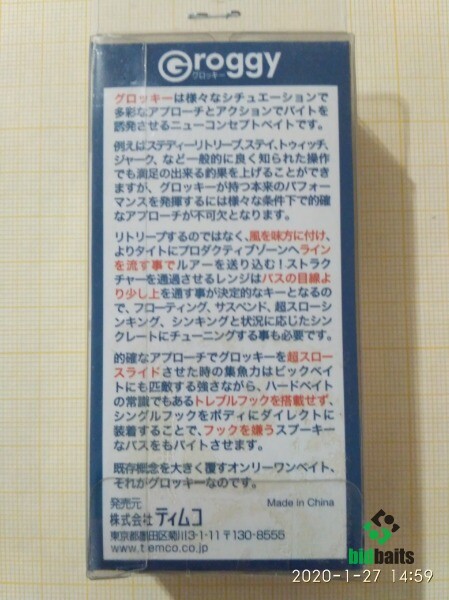 Groggy
グロッキー
グロッキーは様々なシチュエーションで
多彩なアプローチとアクションでバイトを
誘発させるニューコンセプトベイトです。
例えばステディーリトリーブ、ステイ、トゥィッチ、
ジャーク、など一般的に良く知られた操作
でも満足の出来る釣果を上げることができ
ますが、グロッキーが持つ本来のパフォー
マンスを発揮するには様々な条件下で的確
なアプローチが不可欠となります。
リトリーブするのではなく、風を味方に付け、
よりタイトにプロダクティブゾーンへライン
を流す事でルアーを送り込む!ストラク
チャーを通過させるレンジはバスの目線
より少し上を通す事が決定的なキーとなるの
で、フローティング、サスペンド、超スローシ
ンキング、シンキングと状況に応じたシンク
レートにチューニングする事も必要です。
的確なアプローチでグロッキーを超スロー
スライドさせた時の集魚力はビックベイ
トにも匹敵する強さながら、ハードベイト
の常識でもあるトレブルフックを搭載せず、
シングルフックをボディにダイレクトに
装着することで、フックを嫌うスプーキー
なバスをもバイトさせます。
既存概念を大きく覆すオンリーワンベイト、
それがグロッキーなのです。
発売元
Made in China
株式会社 ティムコ
東京都墨田区菊川3-1-11 〒130-8555
www.tiemco.co.jp
bidbaits
2020-1-27 14:59